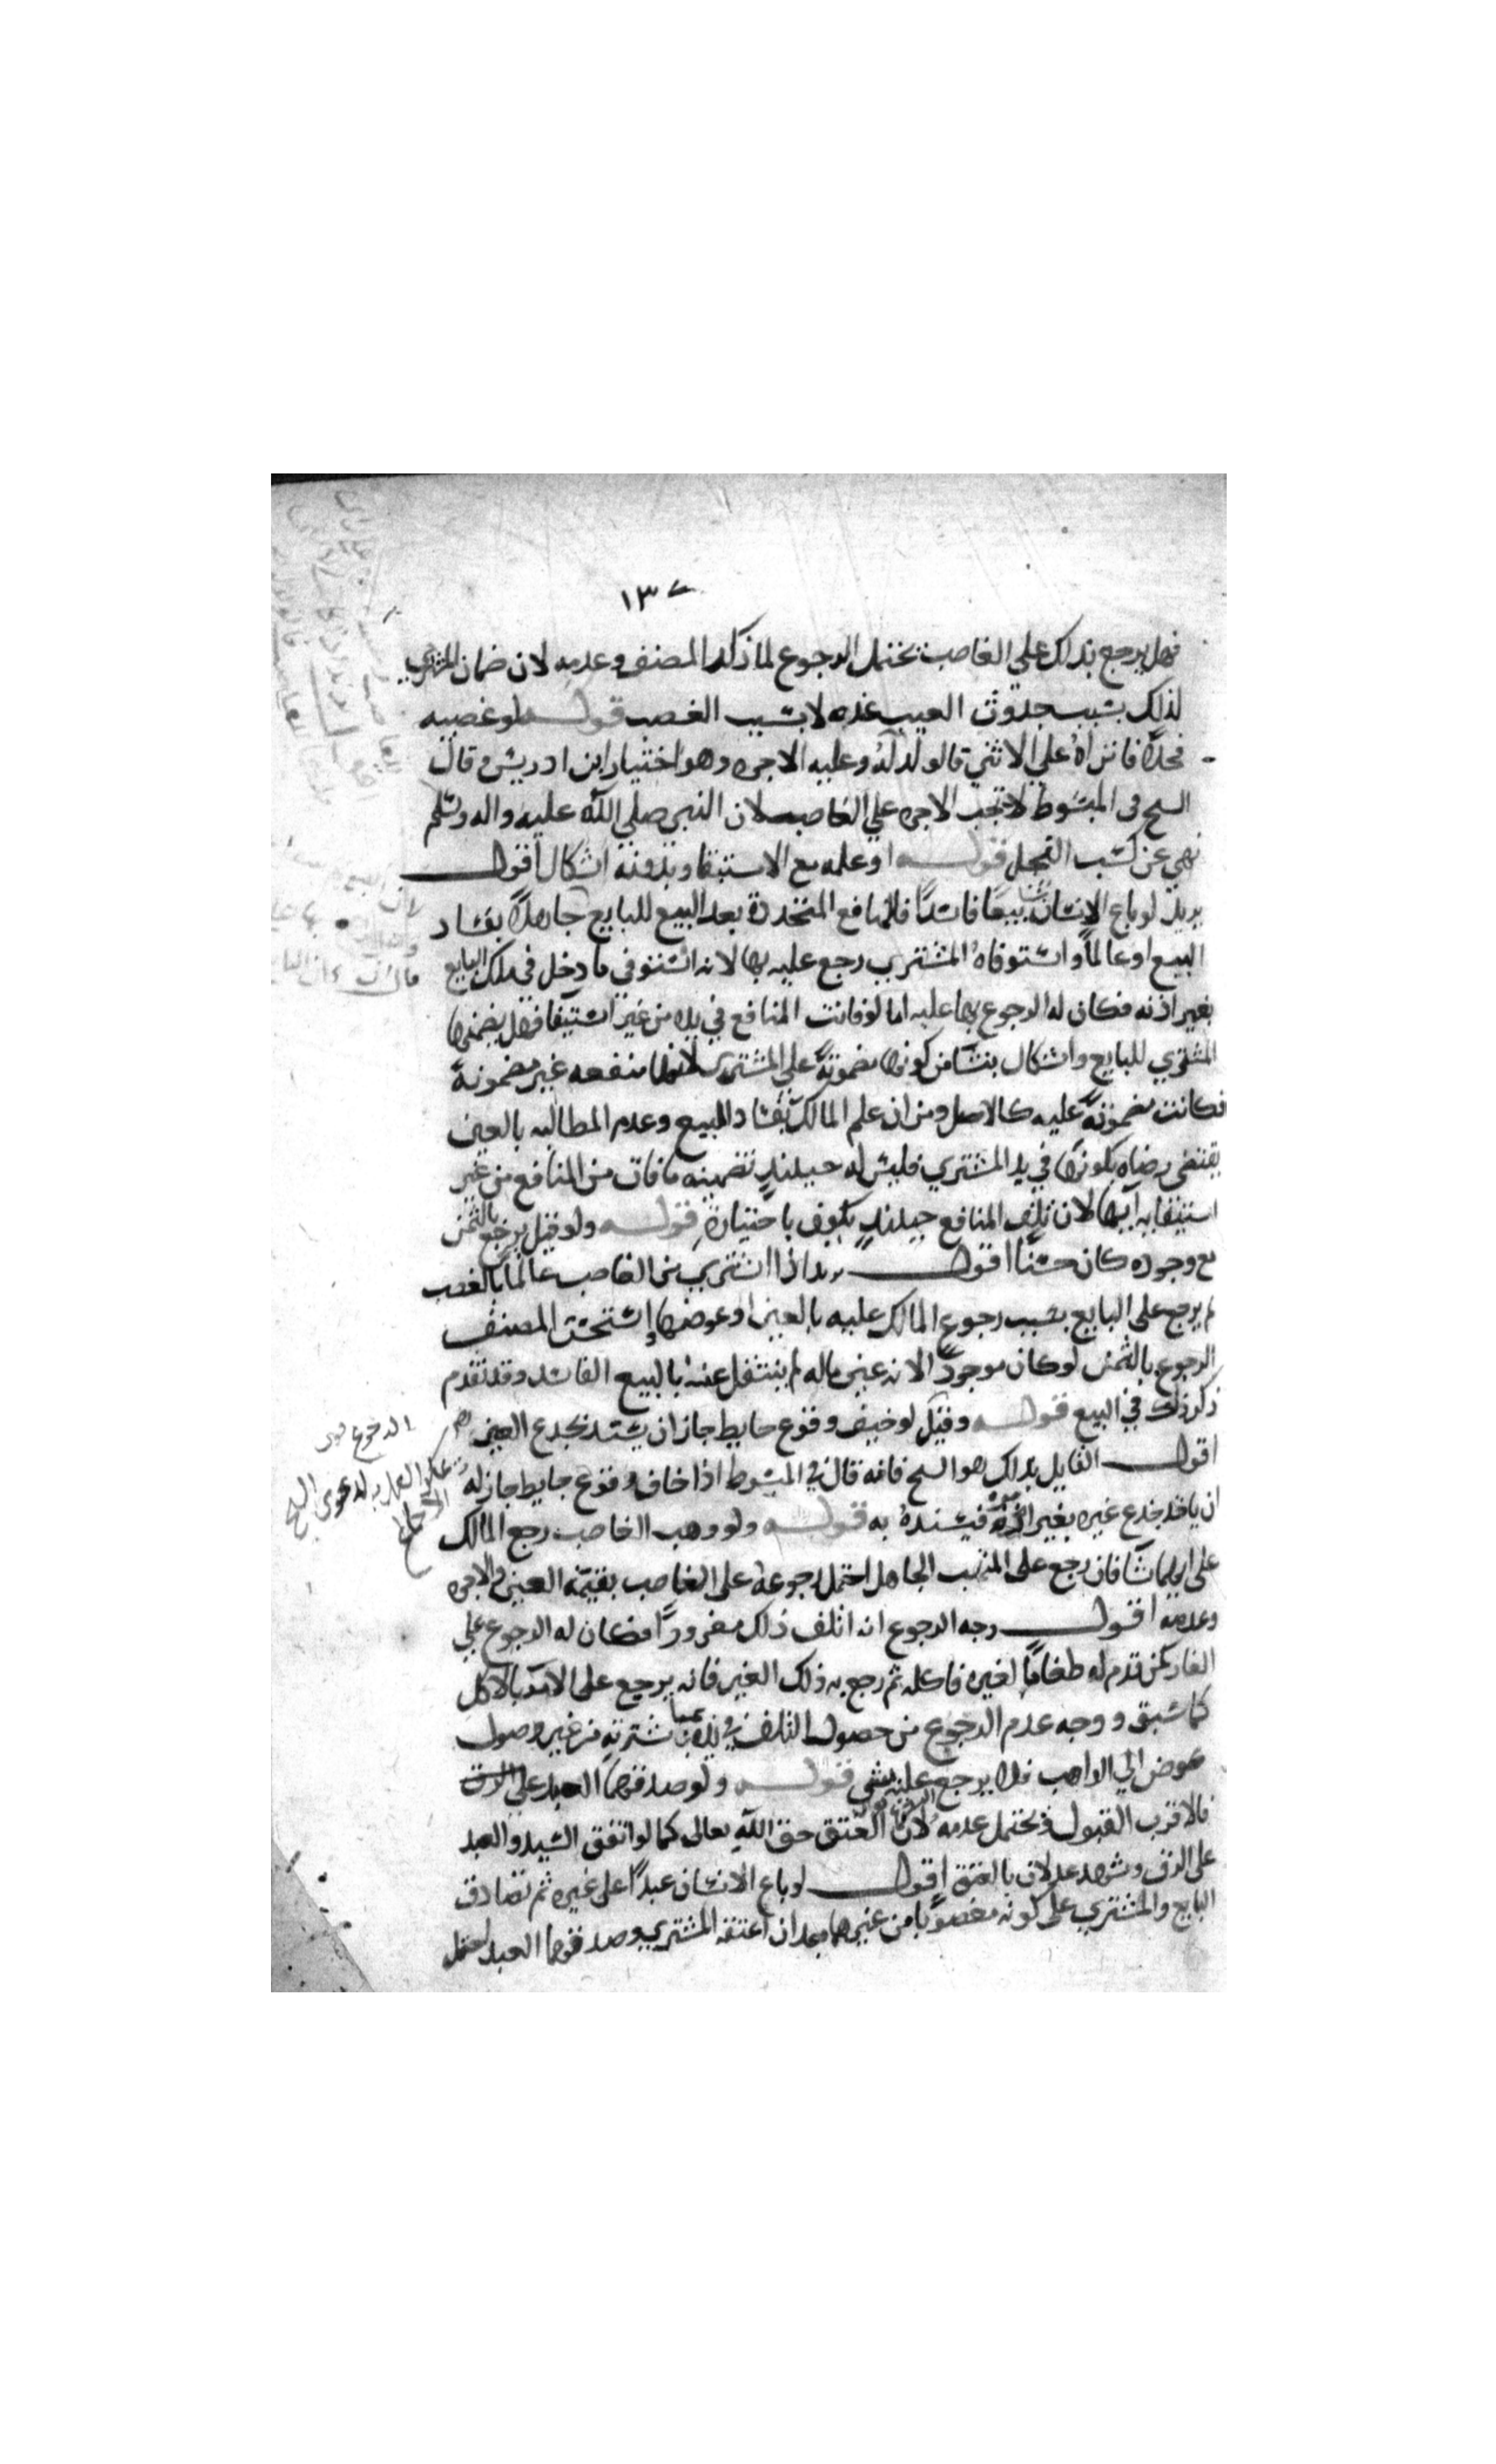 ١٣٧
فهل يرجع بذلك على الغاصب يحتمل الرجوع لما ذكره المصنف وعدمه لان ضمان المشتري
لذلك بسبب حدوث العيب عنده لا بسبب الغصب قوله ولو غصبه
فحلا فانزاه على الانثى قالولد له وعليه الاجره وهو اختيار ابن ادريس وقال
السح في المبسوط لا تجب الاجره على الغاصب لان النبي صلى الله عليه واله وسلم
نهى عن كسب الفحل قوله او علمه مع الاستيفا وبدونه اشكال اقول
يريد لو باع الانسان شيئا بيعا فاسدا فالمنافع المتجددة بعد البيع للبايع جاهلا بفساد
البيع او عالما واستوفاه المشتري رجع عليه بها لانه استوفى ما دخل في ملك البايع
بغير اذنه فكان له الرجوع بها عليه اما لو فاتت المنافع في يده من غير استيفا فهل يضمنها
المشتري للبايع واشكال ينشا من كونها مضمونة على المشتري لانها منفعه عين مضمونة
فكانت مضمونة عليه كالاصل ومن ان علم المالك بفساد البيع وعدم المطالبه بالعين
يقتضى رضاه بكونها في يد المشتري فليس له حينئذ تضمينه ما فات من المنافع من غير
استيفايه اياها لان تلف المنافع حينئذ يكون باختياره قوله ولو قيل يرجع بالثمن
مع وجوده كان حسنا اقول يريد اذا اشترى من الغاصب عالما بالغصب
لم يرجع على البايع بسبب رجوع المالك عليه بالعين او عوضها واستحسن المصنف
الرجوع بالثمن لو كان موجودا لانه عين ماله لم ينتقل عنه بالبيع الفاسد وقد تقدم
ذكر ذلك في البيع قوله وقيل لو خيف وقوع حايط جاز ان يسند بجذع الغير
اقول القايل بذلك هو السح فانه قال في المبسوط اذا خاف وقوع حايط جاز له
ان ياخذ جذع غيره بغير امره فيسنده به قوله ولو وهب الغاصب رجع المالك
على ايهما شا فان رجع على المتهب الجاهل احتمل رجوعه على الغاصب بقيمة العين والاجره
وعدمه اقول وجه الرجوع انه اتلف ذلك مغرورا فكان له الرجوع على
الغار كمن قدم له طعاما لغيره فاكله ثم رجع به ذلك الغير فانه يرجع على الآمر بالاكل
كما سبق ووجه عدم الرجوع من حصول التلف في يده بمباشرته من غير وصول
عوض الى الواهب فلا يرجع عليه بشى قوله ولو صدقهما العبد على الرق
فالاقرب القبول ويحتمل عدمه لان العتق حق الله تعالى كما لو اتفق السيد والعبد
على الرق وشهد عدلان بالعتق اقول لو باع الانسان عبدا على غيره ثم تصادق
البايع والمشتري على كونه مغصوبا من غيرهما بعد ان اعتقه المشتري وصدقهما العبد احتمل